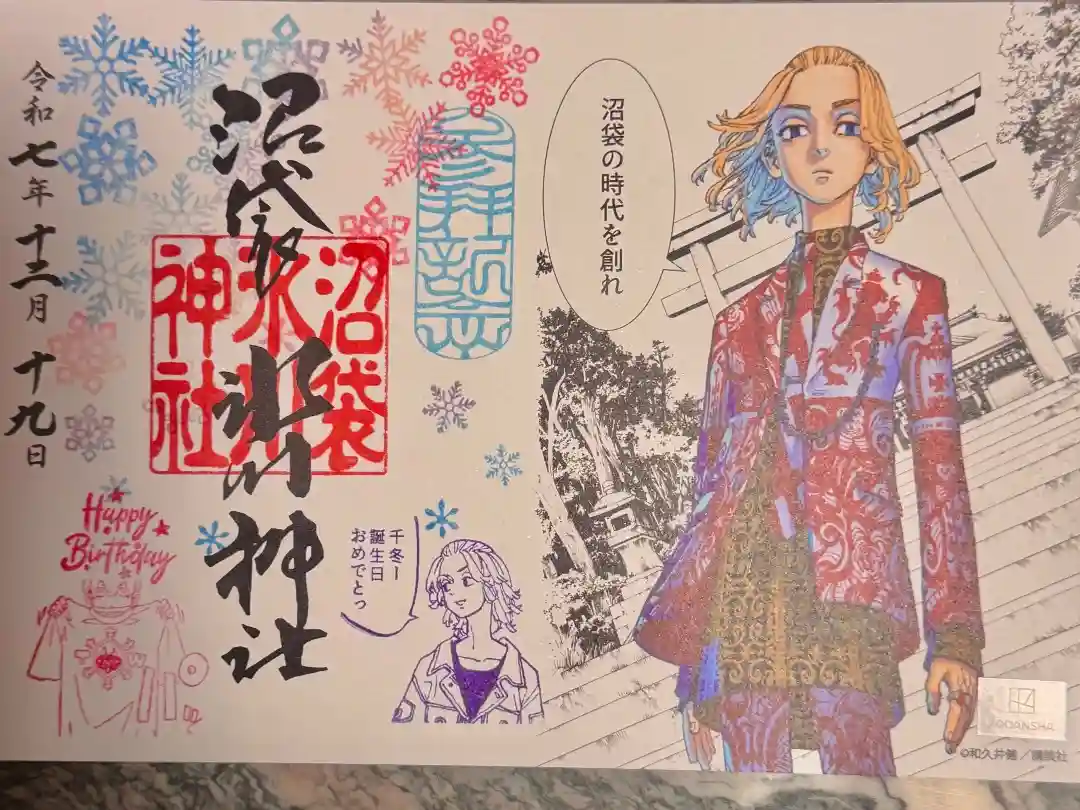 令和七年十二月十九日
沼袋氷川神社
沼袋
氷川
神社
参拝記念
沼袋の時代を創れ
千冬ー
誕生日
おめでとっ
Happy
Birthday
KODANSHA
©和久井健/講談社